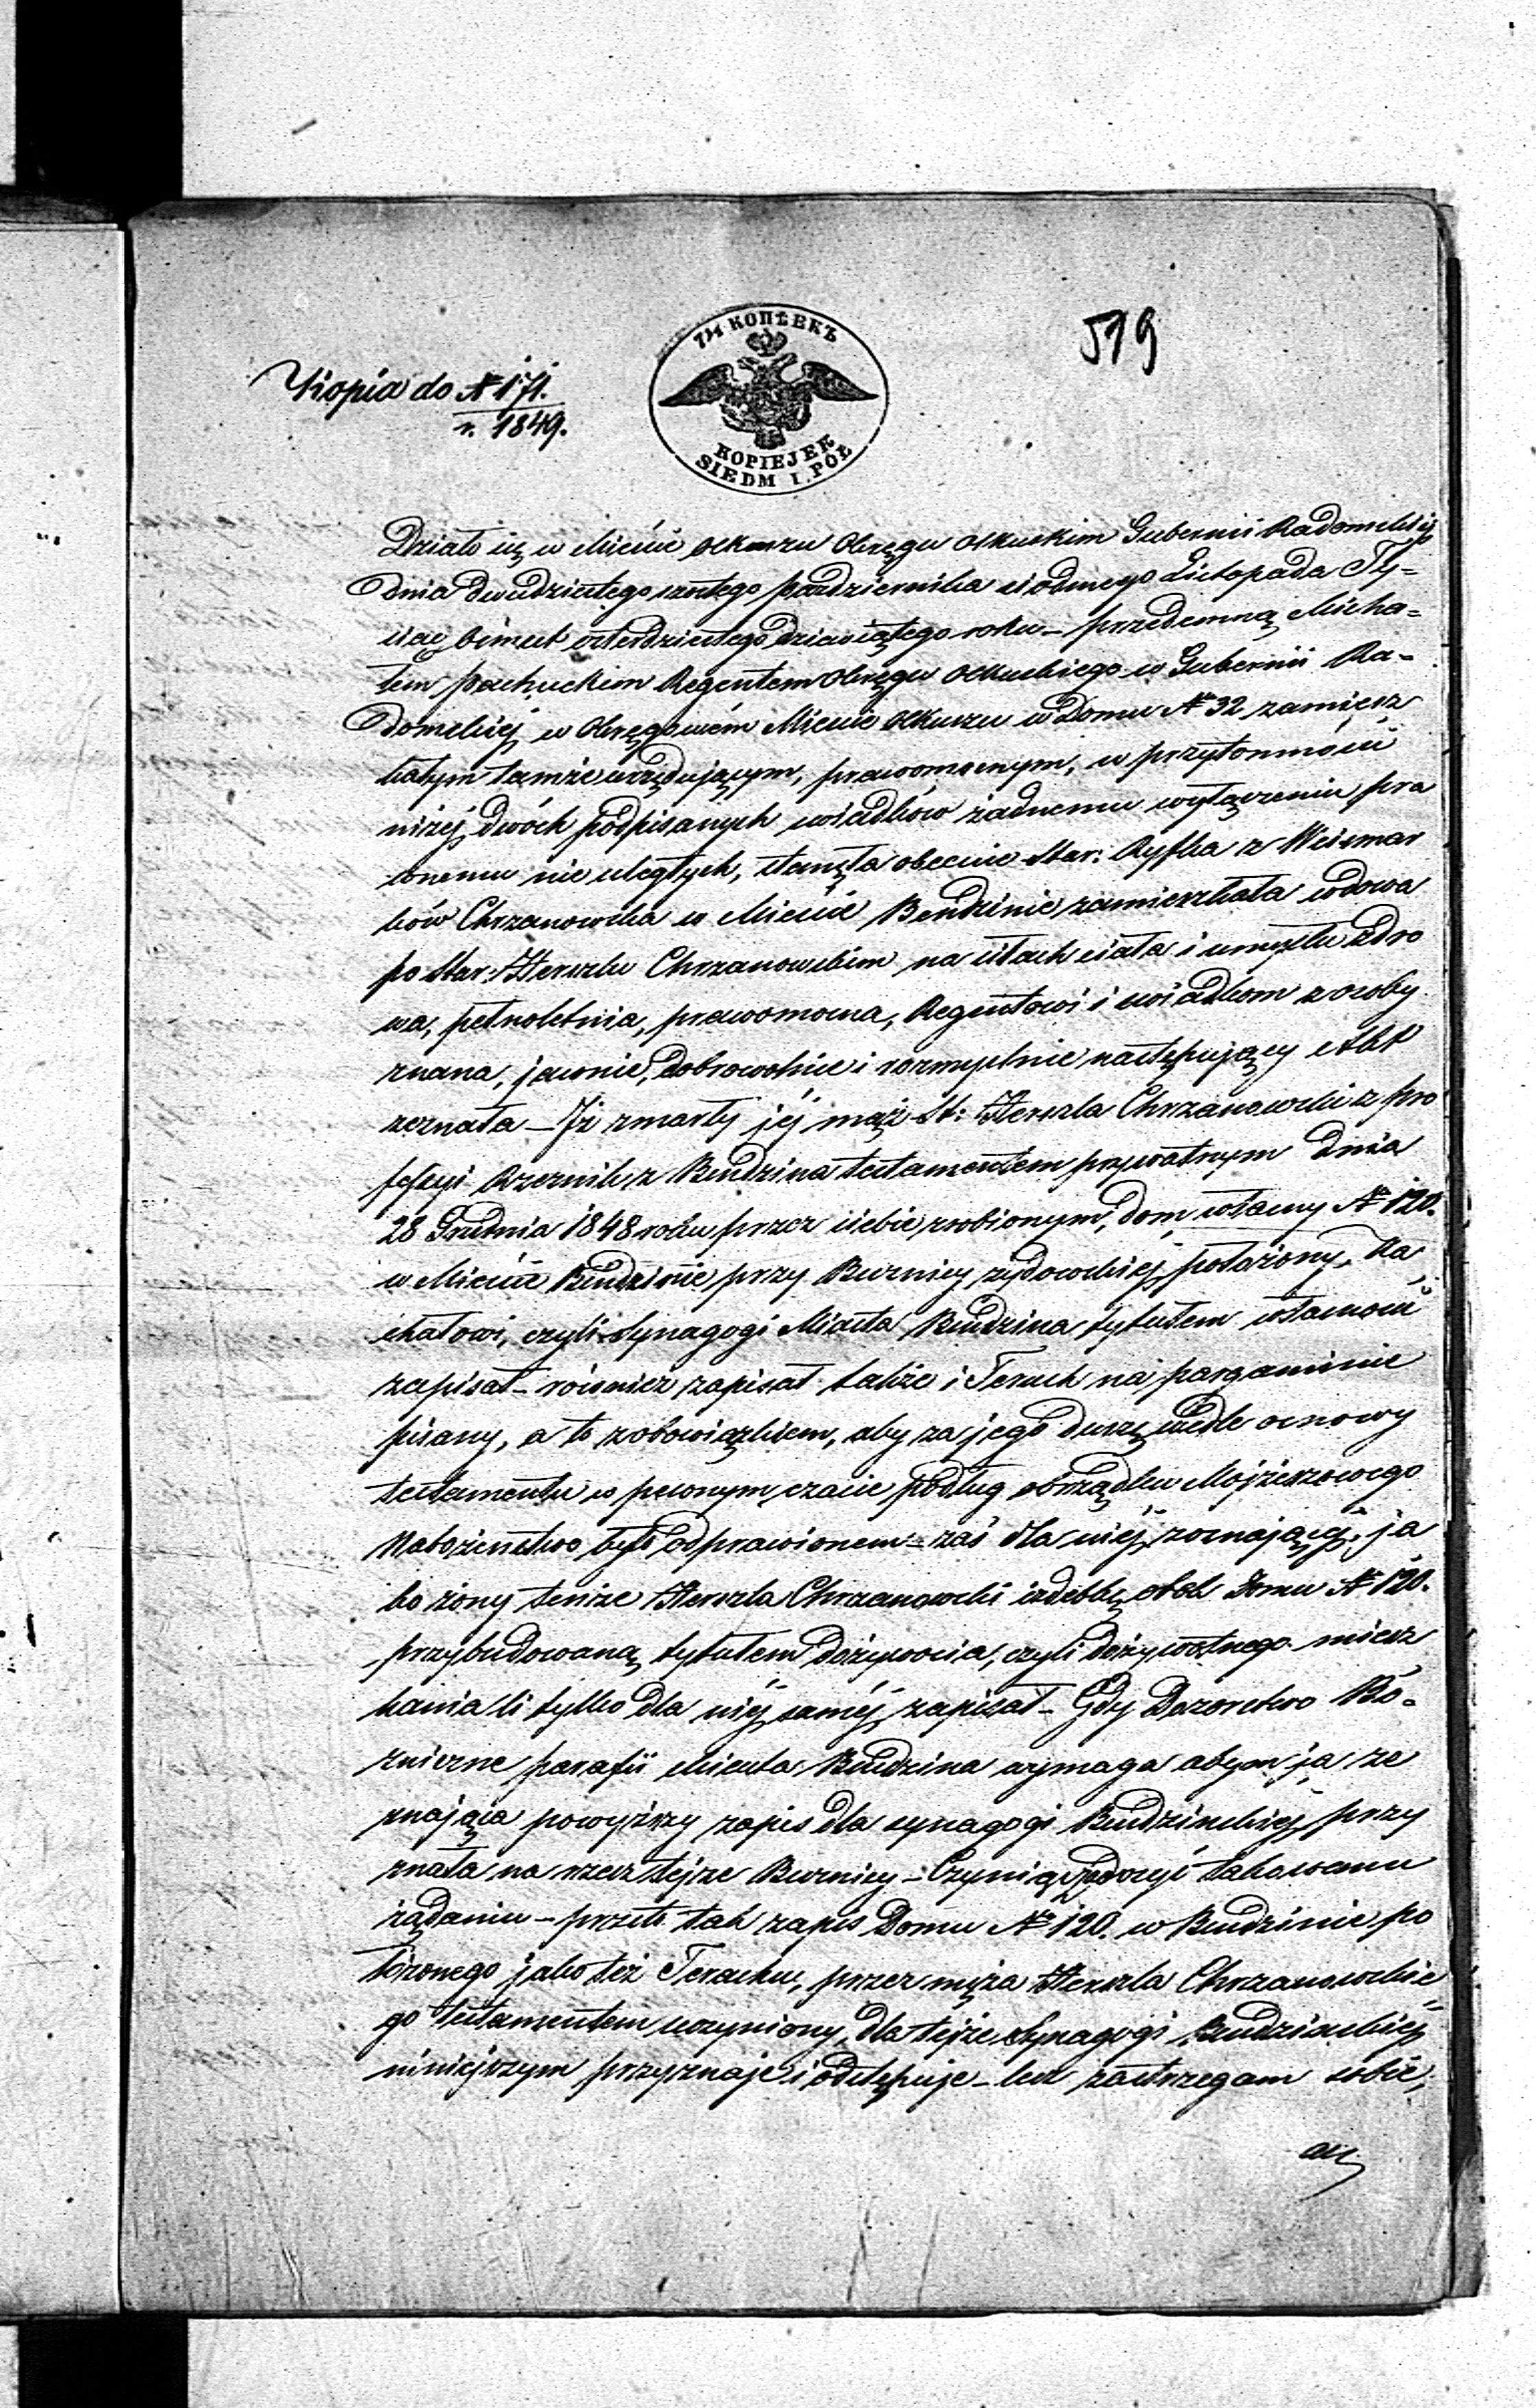 519
7½ КОПѢЕКЪ
KOPIEJEK
SIEDM I PÓŁ
Kopia do № 171.
r. 1849.
Działo się w Mieście Olkuszu Okręgu Olkuskim Gubernii Radomskiej
Dnia dwudziestego szóstego października siódmego Listopada Ty-
siąc ośmset czterdziestego dziewiątego roku – przedemną Micha-
łem Regentem Okręgu Olkuskiego w Gubernii Ra-
domskiej w Okręgowém Mieście Olkuszu w Domu № 32 zamiesz
kałym tamże urzędującym, prawomocnym, w przytomności
niżej dwóch podpisanych świadków żadnemu wyłączeniu pra
wnemu nie uległych, stanęła obecnie Star: Ryfka z Weisman
ków Chrzanowska w Mieście Bendzinie zamieszkała wdowa
po Star: Herszlu Chrzanowskim na siłach ciała i umysłu zdro
wa, pełnoletnia, prawomocna, Regentowi i świadkom z osoby
znana, jawnie, dobrowolnie i rozmyślnie następujący Akt
zeznała – Iż zmarły jéj mąż St: Herszla Chrzanowski z pro
fessyi Rzeznik z Bendzina testamentem prywatnym dnia
28 Grudnia 1848 roku przez siebie zrobionym, dom własny № 120.
w Mieście Bendzinie przy Buznicy żydowskiej położony, Ka
chałowi, czyli Synagogi Miasta Bendzina tytułem własności
zapisał – również zapisał także i Terach na pargaminie
pisany, a to z obowiązkiem, aby za jego duszę wedle osnowy
testamentu w pewnym czasie podług obrządku Mojżeszowego
Nabożeństwo było odprawionem – zaś dla niéj zeznającéj, ja
ko żony tenże Herszla Chrzanowski izdebkę obok Domu № 120.
przybudowaną tytułem dożywocia, czyli dożywotnego miesz
kania li tylko dla niéj saméj zapisał – Gdy Dozorstwo Bó-
żnicze parafii Miasta Bendzina wymaga abym ja ze
znająca powyższy zapis dla synagogi Bendzinskiej przy
znała na rzecz tejże Buznicy – Czyniąc zadosyć takowemu
żądaniu – przeto tak zapis Domu № 120. w Bendzinie po
łożonego jako też Terachu, przez męża Herszla Chrzanowskie
go testamentem uczyniony, dla tejże Synagogi Bendzinskiej
niniejszym przyznaje i odstępuje – lecz zastrzegam sobie,